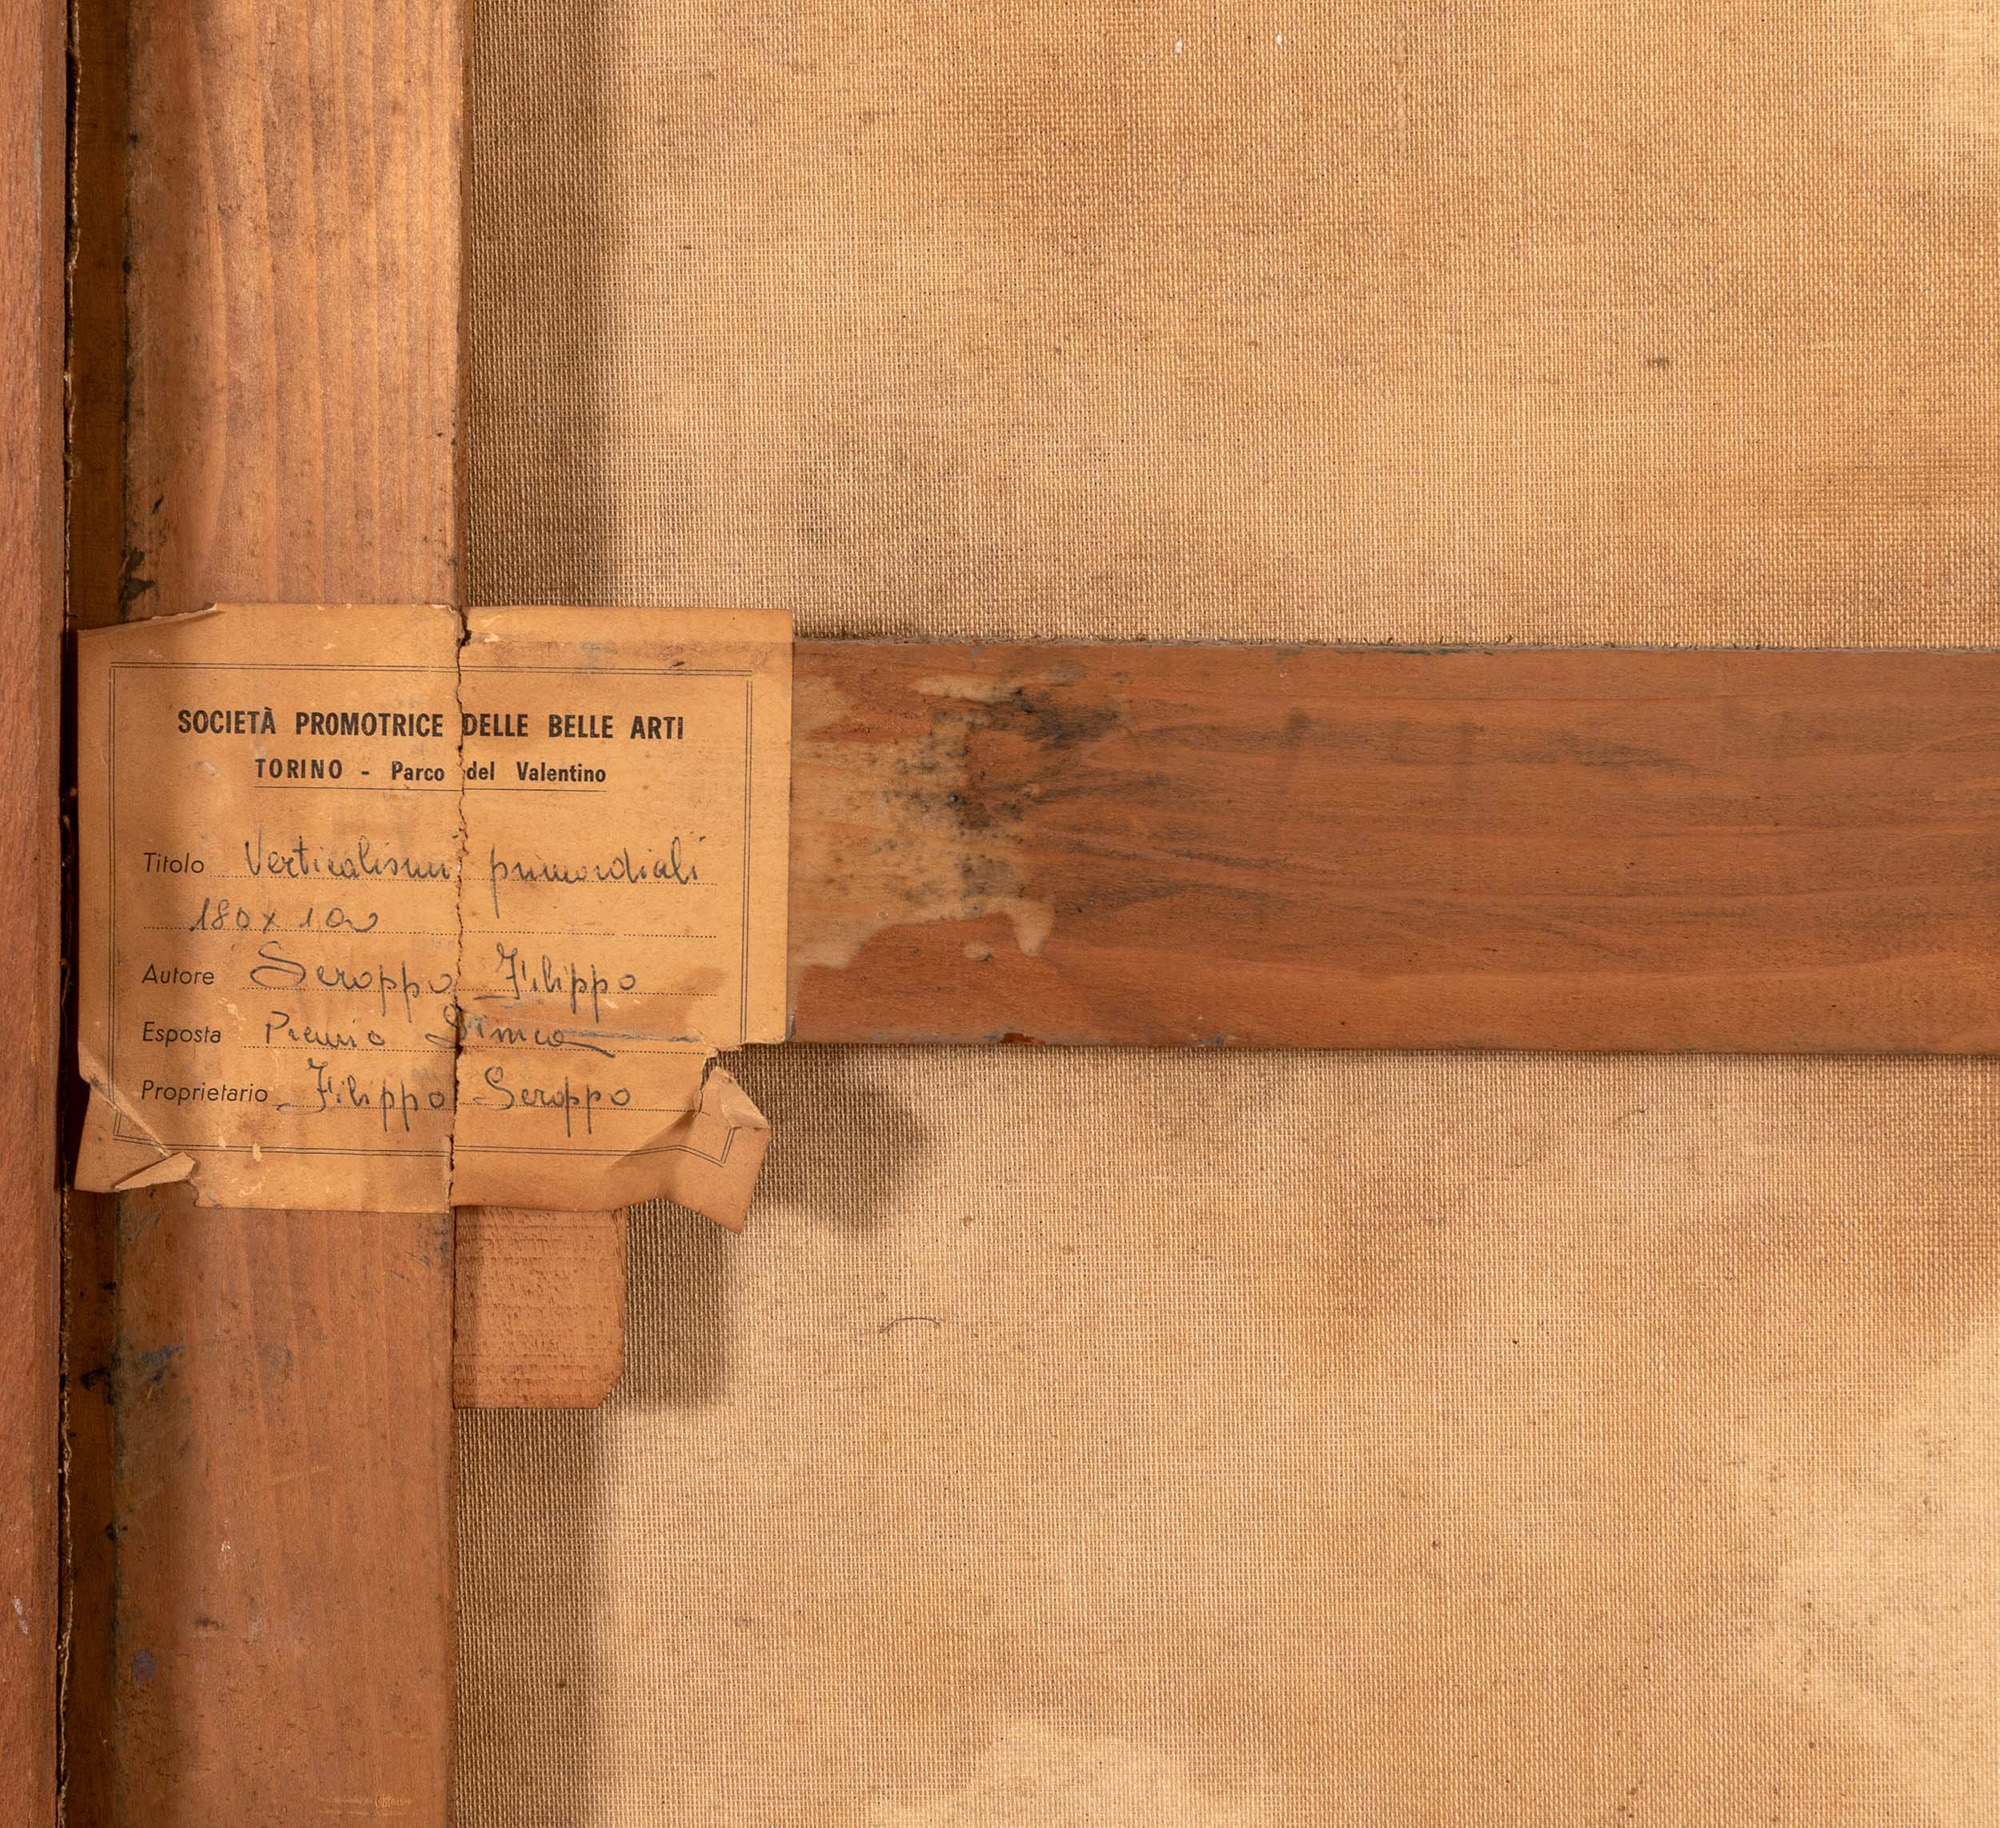 SOCIETÀ PROMOTRICE DELLE BELLE ARTI
TORINO - Parco del Valentino
Titolo Verticalismi primordiali
180 x
Autore Seroppo Filippo
Esposta Premio Simca
Proprietario Filippo Seroppo